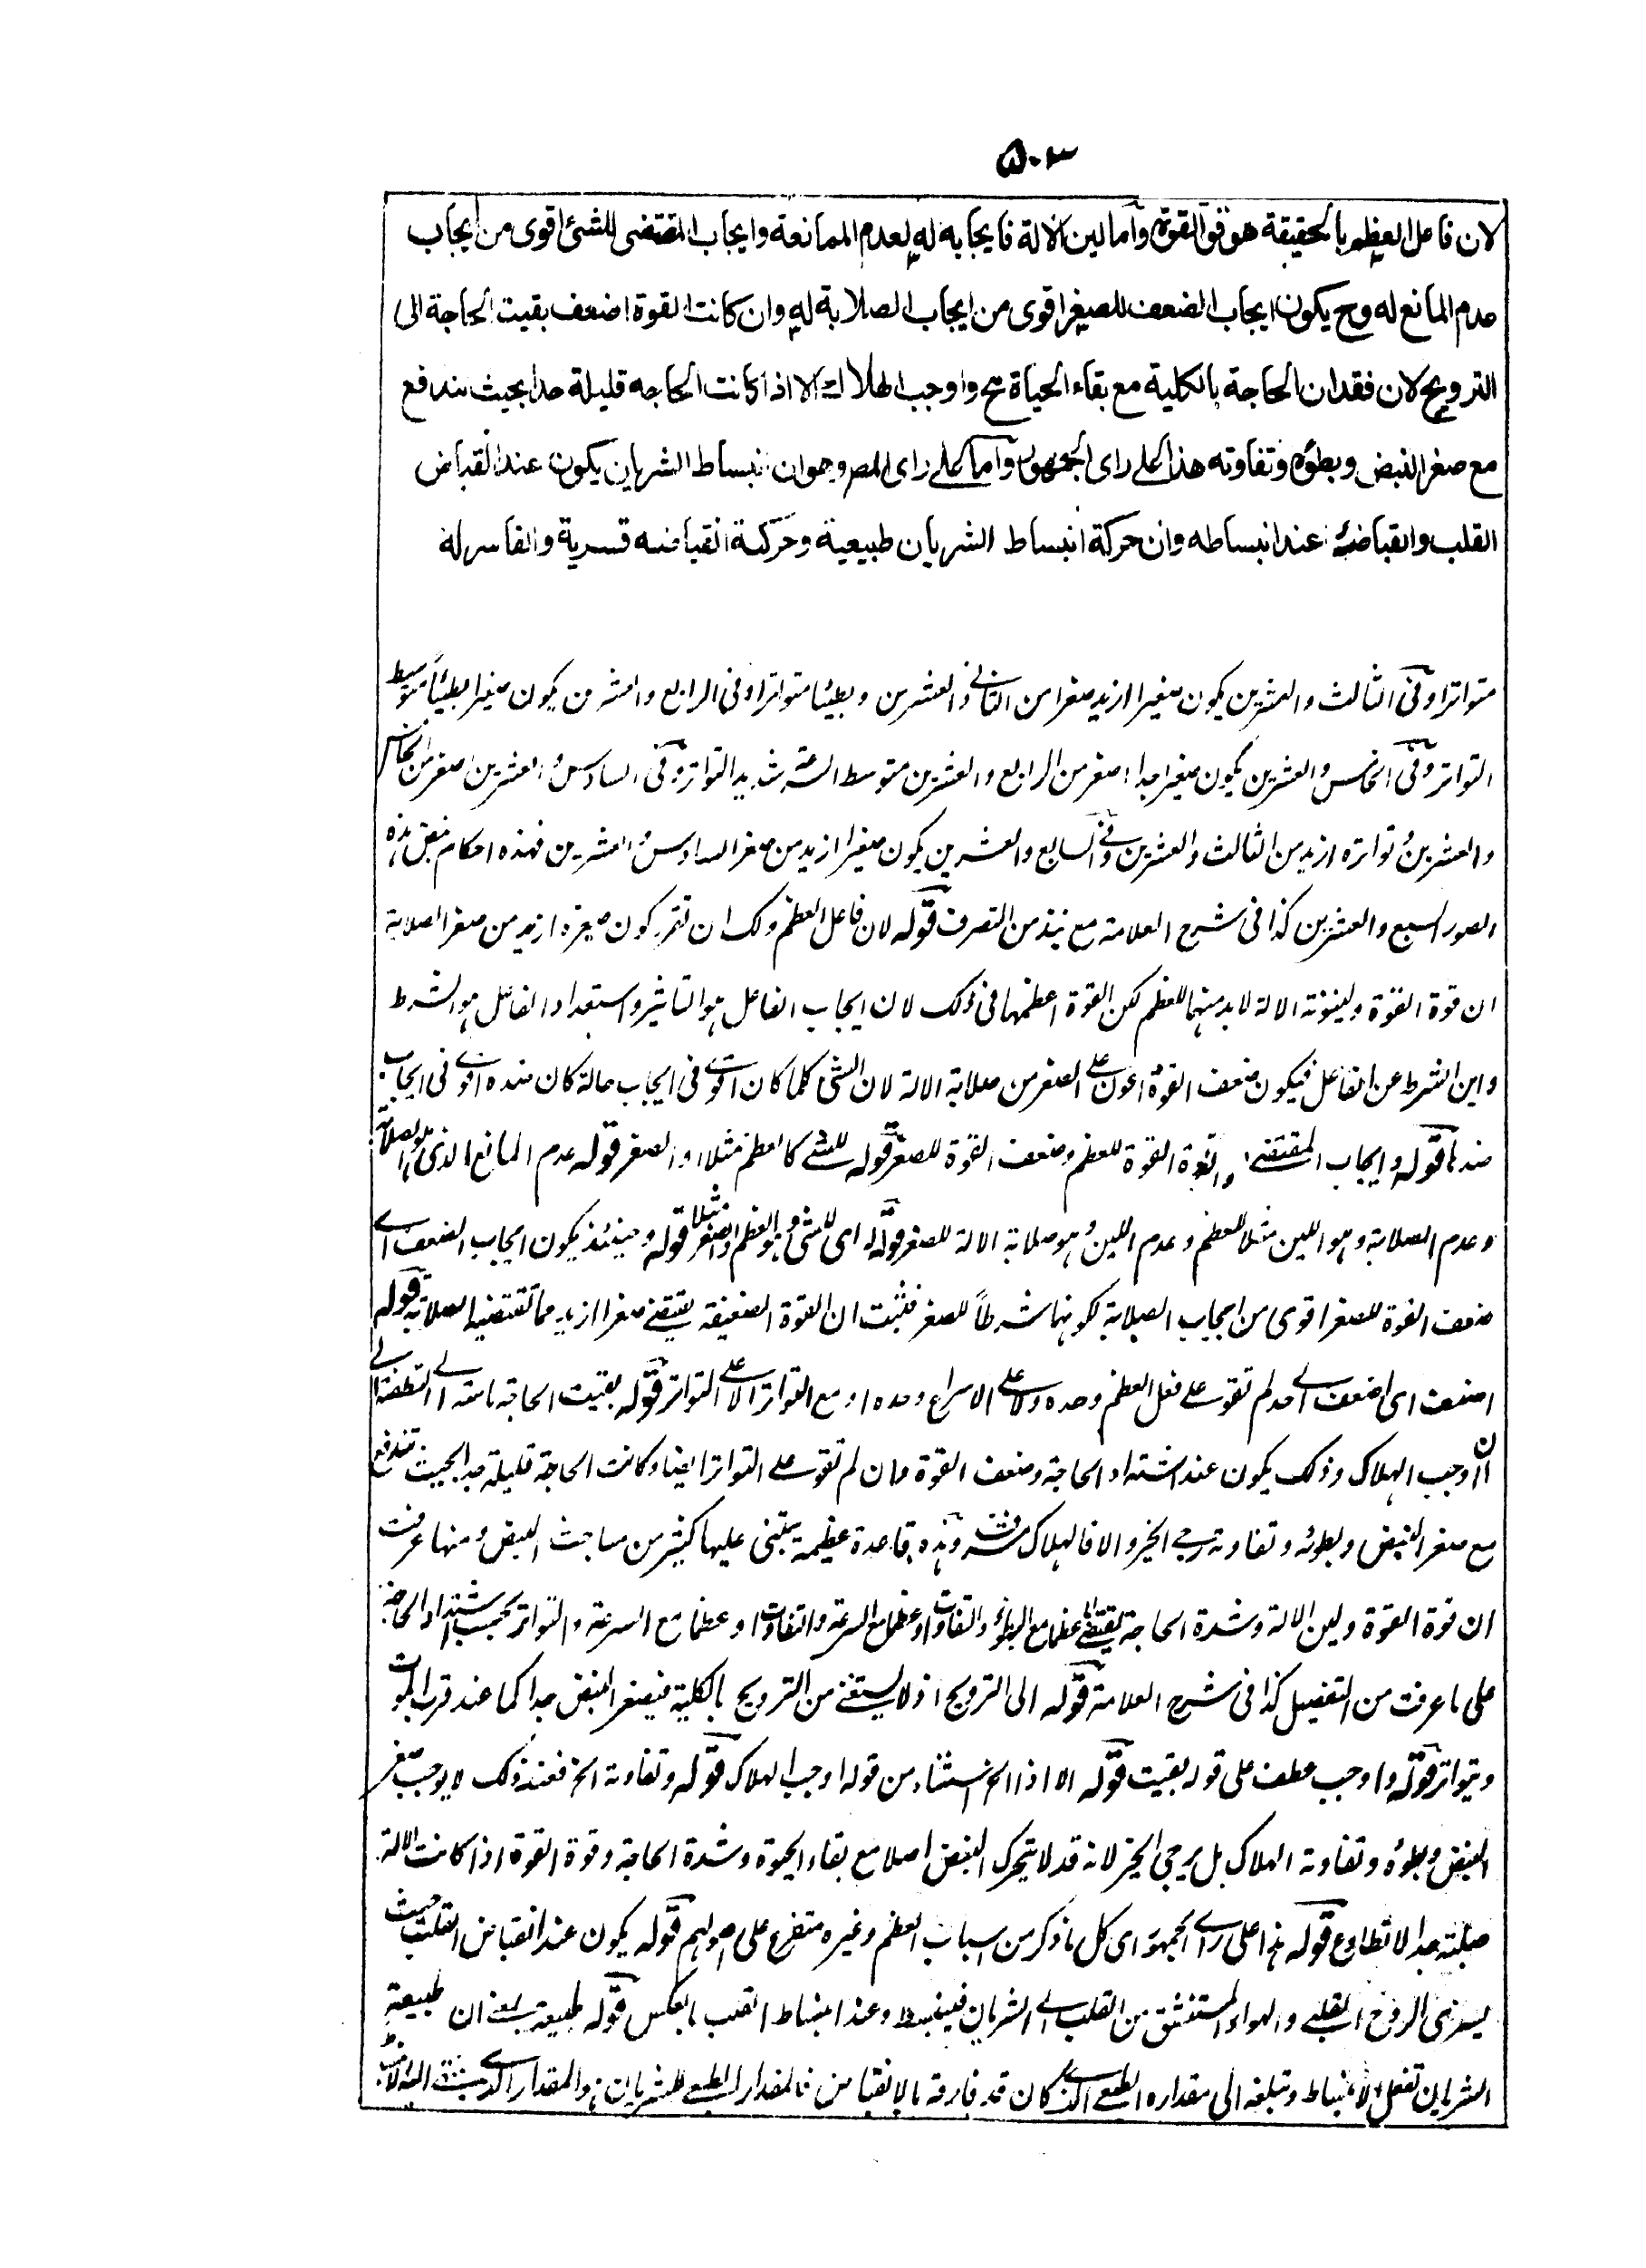 ٥٠٣
لان فاعل العظم بالحقيقة هو قوة القوة واما لين الالة فايجابه له لعدم الممانعة وايجاب المقتضى للشئ اقوى من ايجاب
عدم المانع له وح يكون ايجاب الضعف للصغر اقوى من ايجاب الصلابة له وان كانت القوة اضعف بقيت الحاجة الى
الترويح لان فقدان الحاجة بالكلية مع بقاء الحياة مح واوجب الهلاك الا اذا كانت الحاجه قليلة جدا بحيث تندفع
مع صغر النبض وبطؤه وتفاوته هذا على راى الجمهور واما على راى المص وهو ان انبساط الشريان يكون عند انقباض
القلب وانقباضه عند انبساطه وان حركة انبساط الشريان طبيعية وحركة انقباضه قسرية والقاسر له
متواترا وفى الثالث والعشرين يكون صغيرا ازيد صغرا من الثانى والعشرين وبطيئا متواترا وفى الرابع والعشرين يكون صغيرا بطيئا متوسط
التواتر وفى الخامس والعشرين يكون صغيرا جدا اصغر من الرابع والعشرين متوسط السرعة شديد التواتر وفى السادس والعشرين اصغر من الخامس
والعشرين وتواتره ازيد من الثالث والعشرين وفى السابع والعشرين يكون صغيرا ازيد من صغر السادس والعشرين فهذه احكام نبض هذه
الصور السبع والعشرين كذا فى شرح العلامة مع نبذ من التصرف قوله لان فاعل العظم ولك ان تقرر كون صغره ازيد من صغر الصلابة
ان قوة القوة ولينونة الالة لابد منهما للعظم لكن القوة اعظمها فى ذلك لان ايجاب الفاعل هو التاثير واستعداد الفاعل هو الشرط
واين الشرط عن الفاعل فيكون ضعف القوة اعون على الصغر من صلابة الالة لان الشئ كلما كان اقوى فى ايجاب حالة كان ضده اقوى فى ايجاب
ضدها قوله وايجاب المقتضى وقوة القوة للعظم وضعف القوة للصغر قوله للشئ كالعظم مثلا او الصغر قوله عدم المانع الذى هو الصلابة
وعدم الصلابة وهو اللين مثلا للعظم وعدم اللين وهو صلابة الالة للصغر قوله له اى للشئ وهو العظم او الصغر مثلا قوله وحينئذ يكون ايجاب الضعف اى
ضعف القوة للصغر اقوى من ايجاب الصلابة لكونها شرطاً للصغر فثبت ان القوة الضعيفة يقتضى صغرا ازيد مما تقتضيه الصلابة قوله
اضعف اى اضعف الى حد لم تقو على فعل العظم وحده ولا على الاسراع وحده او مع التواتر الا على التواتر قوله بقيت الحاجة ماسة الى التطفئة الى
ان اوجب الهلاك وذلك يكون عند اشتداد الحاجة وضعف القوة فان لم تقو على التواتر ايضا وكانت الحاجة قليلة جدا بحيث تندفع
مع صغر النبض وبطوئه وتفاوته يرجى الخير والا فالهلاك وهذه قاعدة عظيمة يبتنى عليها كثير من مباحث النبض ومنها عرفت
ان قوة القوة ولين الالة وشدة الحاجة يقتضى اما عظما مع البطؤ والتفاوت او عظما مع السرعة والتفاوت او عظما مع السرعة والتواتر بحسب اشتداد الحاجة
على ما عرفت من التفصيل كذا فى شرح العلامة قوله الى الترويح اذ لا يستغنى من الترويح بالكلية فيصغر النبض جدا كما عند قرب الموت
ويتواتر قوله واوجب عطف على قوله بقيت قوله الا اذا الخ استثناء من قوله اوجب الهلاك قوله وتفاوته الخ فعند ذلك لا يوجب صغر
النبض وبطوءه وتفاوته الهلاك بل يرجى الخير لانه قد لا يتحرك النبض اصلا مع بقاء الحيوة وشدة الحاجة وقوة القوة اذا كانت الالة
صلبة جدا لا تطاوع قوله هذا على راى الجمهور اى كل ما ذكر من اسباب العظم وغيره متفرع على اصولهم قوله يكون عند انقباض القلب حيث
يسرى الروح القلبى والهواء المستنشق من القلب الى الشريان فينبسط وعند انبساط القلب بالعكس قوله طبيعية بمعنى ان طبيعة
الشريان تفعل الانبساط وتبلغه الى مقداره الطبيعى الذى كان قد فارقه بالانقباض فالمقدار الطبيعى للشريان هو المقدار الذى